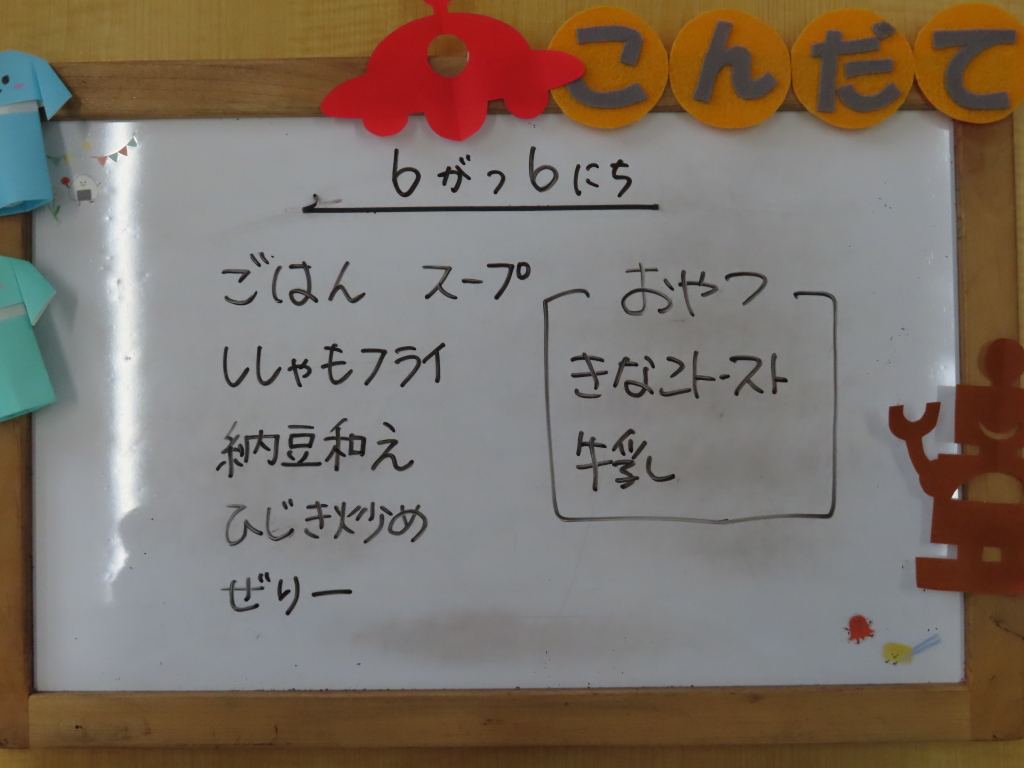 こんだて
6がつ6にち
ごはん スープ
ししゃもフライ
納豆和え
ひじき炒め
ぜりー
おやつ
きなこトースト
牛乳